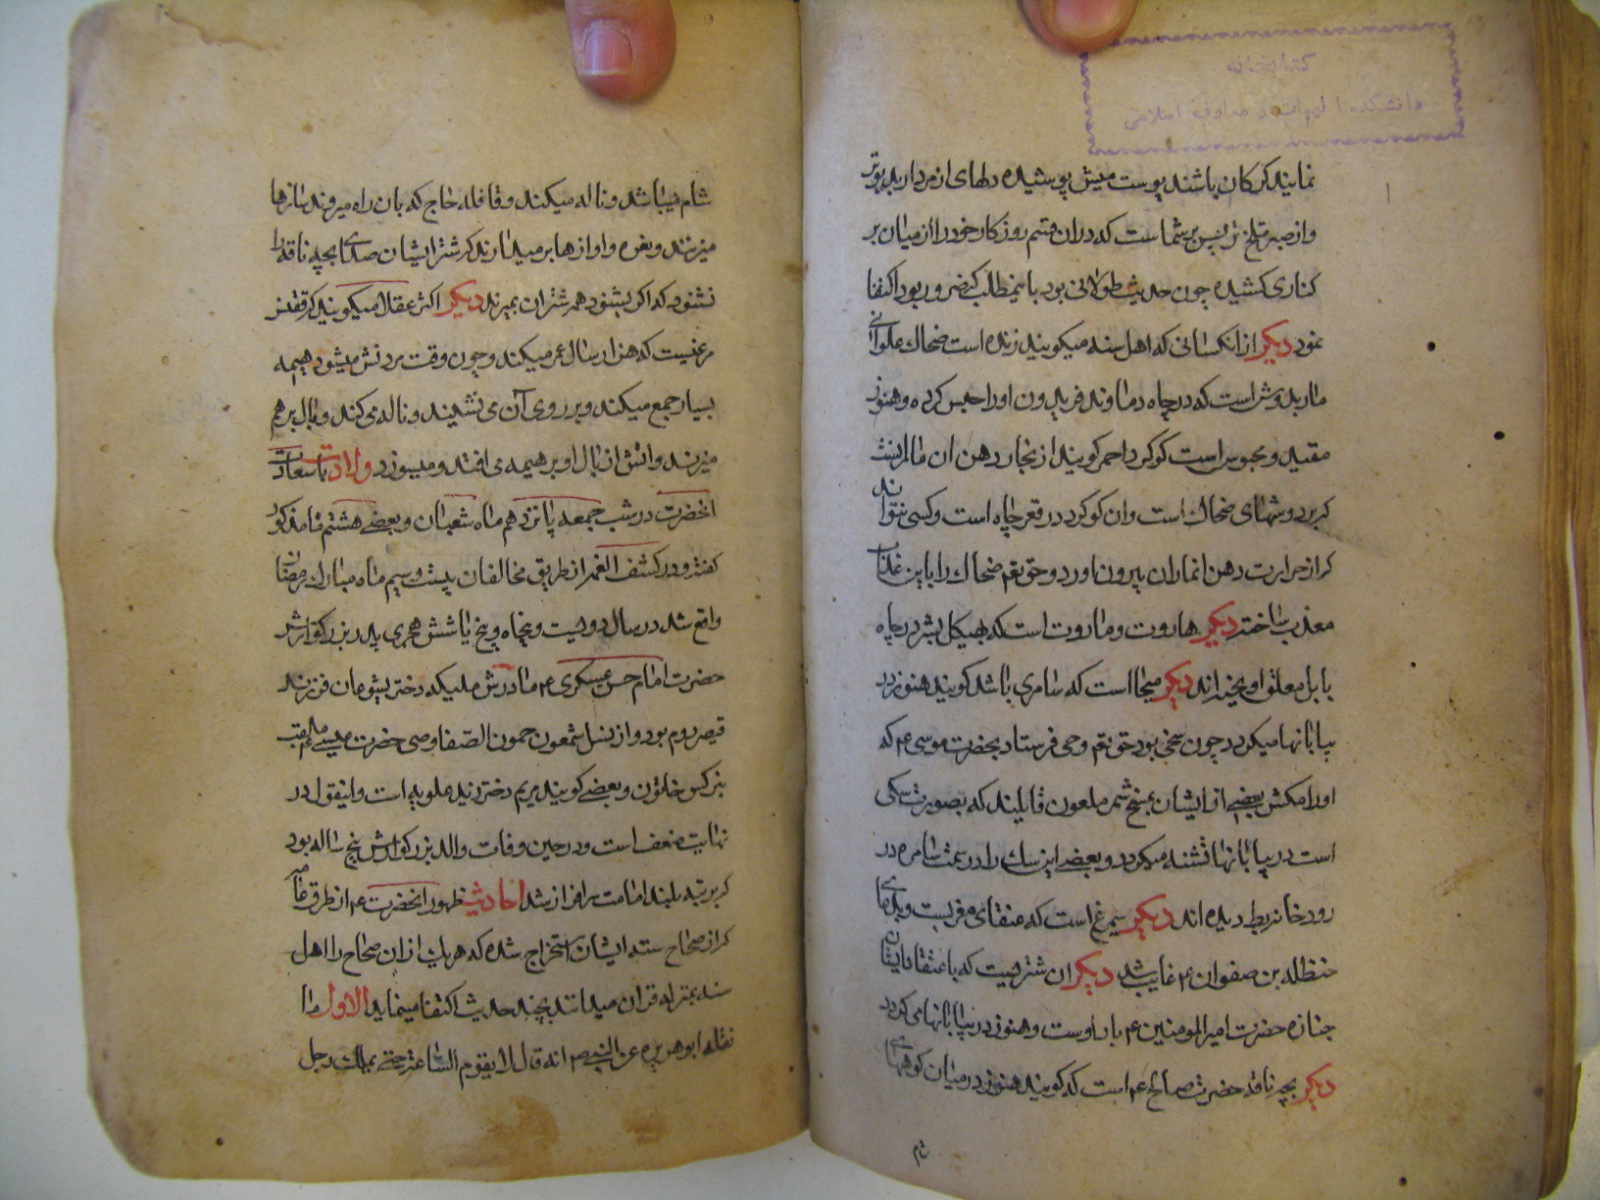 کتابخانه
دانشکده الهیات و معارف اسلامی
نمایند کرکان باشند پوست میش پوشیده دلهای از مردار بدبوتر
و از صبر تلخ تر پس بر شما است که در ان هشتم روزکار خود را از میان بر
کناری کشیده چون حدیث طولانی بود باینمطلب که ضرور بود اکتفا
نمود دیکر از انکسانی که اهل سنه میکویند زنده است ضحاک علوانی
ماربدوش است که در چاه دماوند فریدون او را حبس کرده و هنوز
مقید و محبوس است کوکرد احمر کویند از بخار دهن ان مارانست
که بر دوشهای ضحاک است وان کوکرد در قعر چاه است و کسی نتواند
که از حرارت دهن انماران بیرون اورد و حق تعم ضحاک را باین عذاب
معذب ساخته دیکر هاروت و ماروت است که بهیکل بشر در چاه
بابل معلق اویخته اند دیکر میخا است که سامری باشد کویند هنوز در
بیابانها میکردد چون سخی بود حق تعم وحی فرستاد بحضرت موسی عم که
او را مکش بعضی از ایشان بمسخ شمر ملعون قایلند که بصورت سکی
است در بیابانها تشنه میکردد و بعضی این سک را در سمت سامره در
رودخانه بط دیده اند دیکر سیمرغ است که عنقای مغربست و بدعای
حنظله بن صفوان عم غایب شد دیکر ان شتریست که باعتقاد ایشان
جنازه حضرت امیرالمومنین عم باب اوست و هنوز در بیابانها می کردد
دیکر بچه ناقه حضرت صالح عم است که کویند هنوز در میان کوههای
شام
شام میباشد و ناله میکند و قافله حاج که بان راه میروند سازها
میزنند و نعره و اوازها بر میدارند که شتر ایشان صدای بچه ناقه را
نشنود که اکر بشنود همه شتران بمیرند دیکر اکثر عقلا میکویند که ققنس
مرغیست که هزار سال عمر میکند و چون وقت مردنش میشود هیمه
بسیار جمع میکند و بر روی آن می نشیند و ناله می کند و بال بر هم
میزند و اتش از بال او بر هیمه می افتد و میسوزد ولادت با سعادت
انحضرت در شب جمعه پانزدهم ماه شعبان و بعضی هشتم ماه مذکور
کفته و در کشف الغمه از طریق مخالفان بیست و سیم ماه مبارک رمضان
واقع شد در سال دویست و پنجاه و پنج یا شش هجری پدر بزرکوارش
حضرت امام حسن عسکری عم مادرش ملیکه دختر یشوعان فرزند
قیصر روم بود و از نسل شمعون حمون الصفا وصی حضرت عیسی عم ملقب
بنرکس خاتون و بعضی کویند مریم دختر زید علویه است و اینقول در
نهایت ضعف است و در حین وفات والد بزرکوارش پنج ساله بود
که برتبه بلند امامت سرافراز شد احادیث ظهور انحضرت عم از طرق عامه
که از صحاح سته ایشان استخراج شده که هر یک از ان صحاح را اهل
سنه بمنزله قران میدانند بچند حدیث اکتفا مینماید الاول ما
نقله ابوهریره عن النبی ص انه قال لا یقوم الساعة حتی یملک رجل